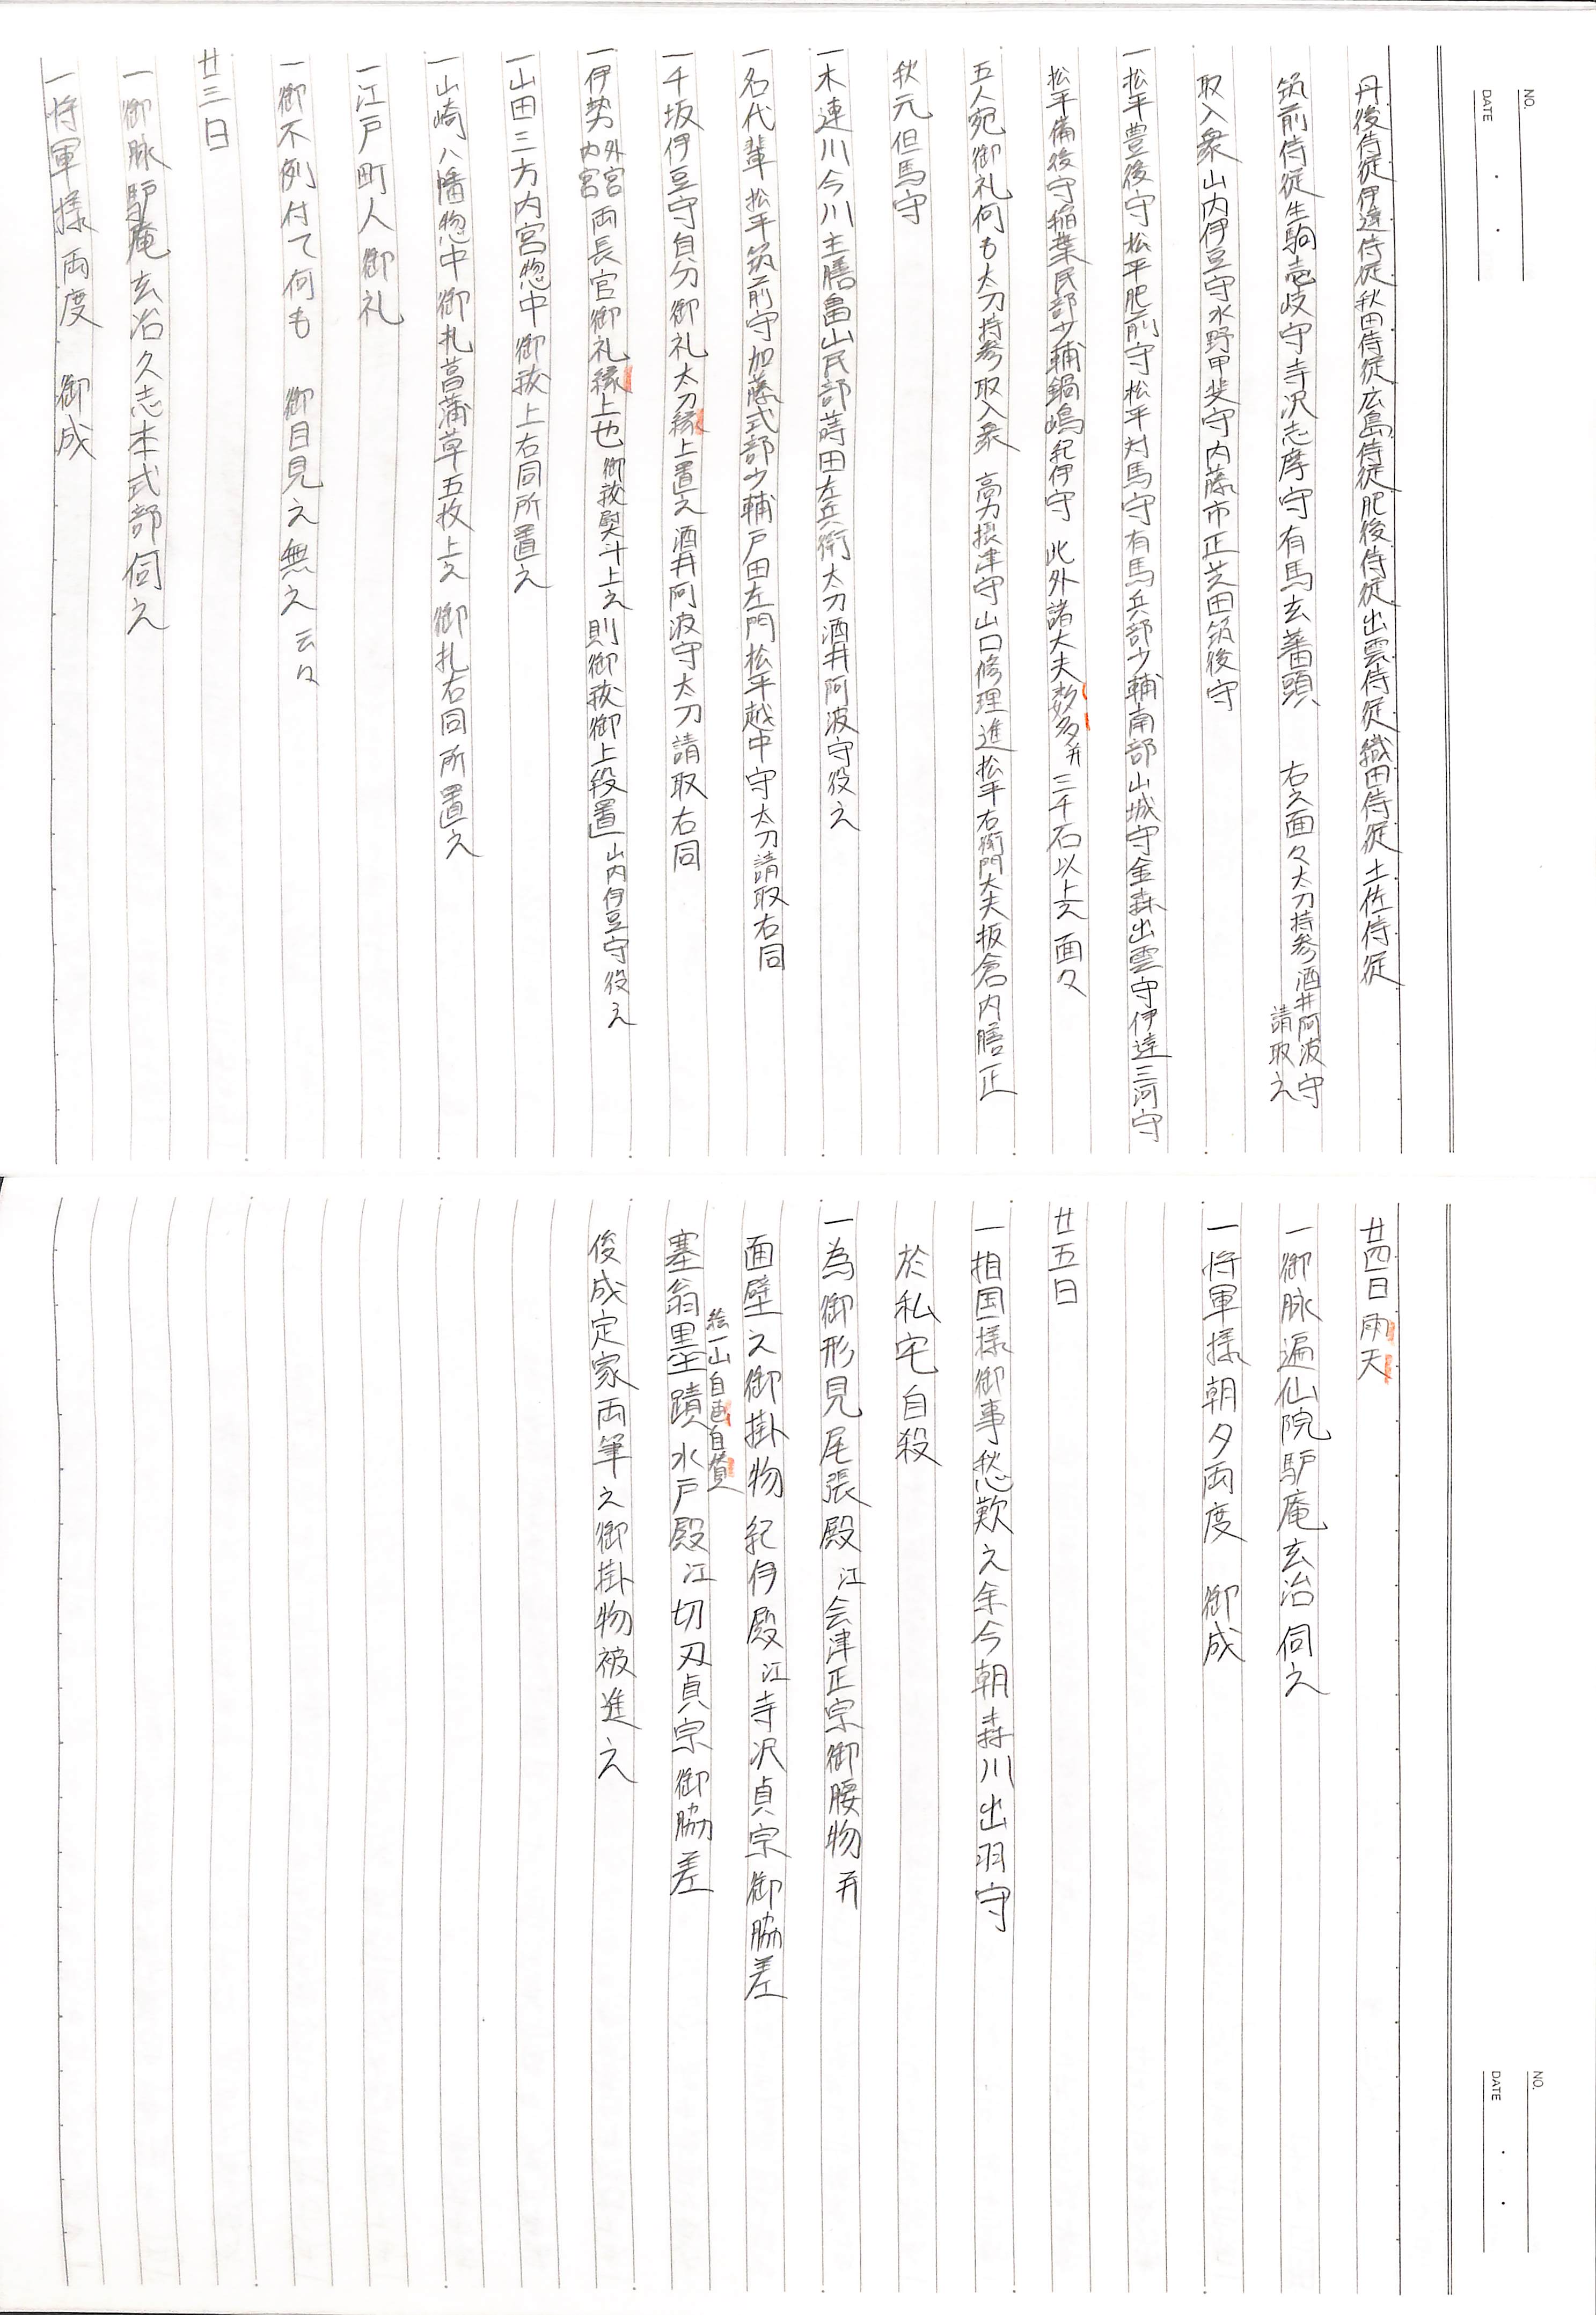 NO.
DATE
丹後侍従伊達侍従秋田侍従広島侍従肥後侍従出雲侍従織田侍従土佐侍従
筑前侍従生駒壱岐守寺沢志摩守有馬玄蕃頭 右之面々太刀持参酒井阿波守請取之
取入衆 山内伊豆守水野甲斐守内藤市正芝田筑後守
一松平豊後守松平肥前守松平対馬守有馬兵部少輔南部山城守金森出雲守伊達三河守
松平備後守稲葉民部少輔鍋嶋紀伊守 此外諸大夫数多并三千石以上之面々
五人宛御礼何も太刀持参取入衆 高力摂津守山口修理進松平右衛門大夫板倉内膳正
秋元但馬守
一木連川今川主膳畠山民部蒔田左兵衛太刀酒井阿波守役之
一名代輩松平筑前守加藤式部少輔戸田左門松平越中守太刀請取右同
一千坂伊豆守自分御礼太刀縁上置之酒井阿波守太刀請取右同
一伊勢外宮内宮両長官御礼縁上也御祓熨斗上之則御祓御上段置山内伊豆守役之
一山田三方内宮惣中御祓上右同所置之
一山崎八幡惣中御札菖蒲草五枚上之御札右同所置之
一江戸町人御礼
一御不例付て何も 御目見之無之云々
廿三日
一御脉驢庵玄冶久志本式部伺之
一将軍様両度 御成
NO.
DATE
廿四日雨天
一御脉遍仙院驢庵玄冶伺之
一将軍様朝夕両度 御成
廿五日
一相国様御事愁歎之余今朝森川出羽守
於私宅自殺
一為御形見尾張殿江会津正宗御腰物并
面壁之御掛物紀伊殿江寺沢貞宗御脇差
絵一山自画自賛
塞翁墨蹟水戸殿江切刃貞宗御脇差
俊成定家両筆之御掛物被進之